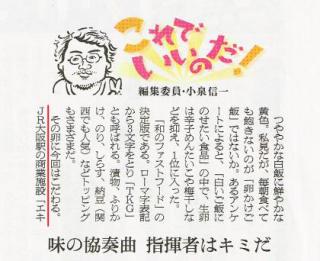 これで
いいのだ!
編集委員・小泉信一
つややかな白飯に鮮やかな
黄色。私見だが、毎朝食べて
も飽きないのが「卵かけご
飯」ではないか。あるアンケ
ートによると、「白いご飯に
のせたい食品」の中で、生卵
は辛子めんたいこや梅干しな
どを抑え、1位に入った。
「和のファストフード」の
決定版である。ローマ字表記
から3文字をとり「TKG」
とも呼ばれる。漬物、ふりか
け、のり、しらす、納豆(関
西でも人気)などトッピング
もさまざまだ。
その卵に今日はこだわる。
JR大阪駅の商業施設「エキ
味の協奏曲 指揮者はキミだ